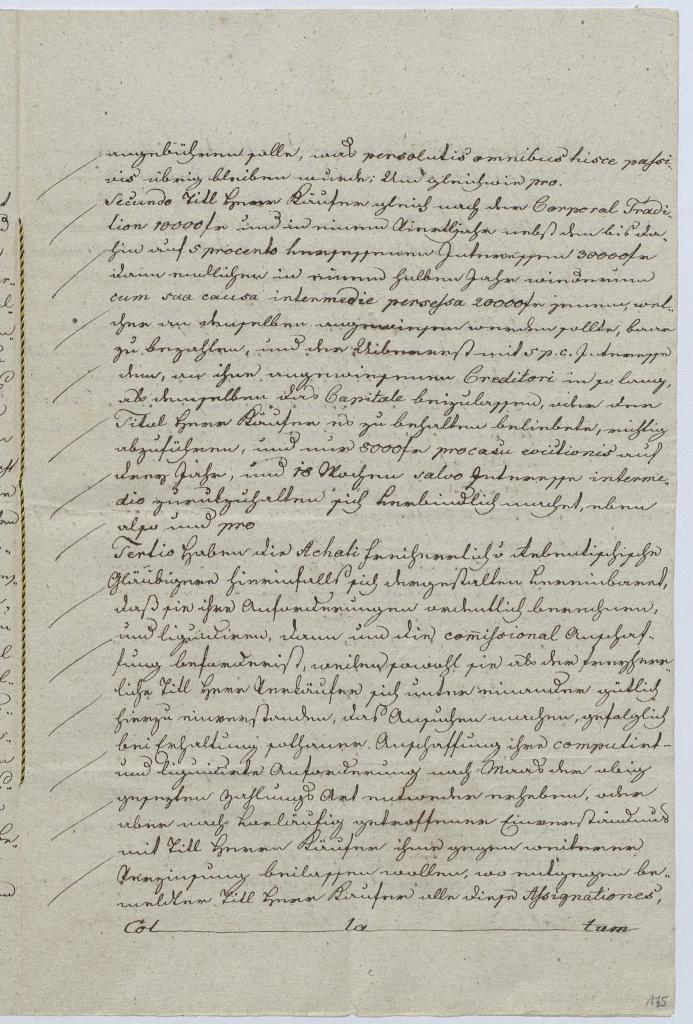 angebühren solle, was persolutis omnibus hisce passi-
vis übrig bleiben wurde: Und gleichwie pro.
Secundo Titl Herr Käufer gleich nach der Corporal Tradi-
tion 10000 fr und in einem Vierteljahr nebst den bis da-
hin auf 5 procento Interessen 30000 fr
dann endlichen in einem halben Jahr wiederum
cum sua causa intermedie persessa 20000 fr jenen, wel-
cher an denselben angewiesen werden sollte, baar
zu bezahlen, und den Uiberrest mit 5 p. c. Interesse
dem, an ihne angewiesenen Creditori in so lang,
als demselben das Capitale beizulassen, oder der
Titul Herr Käufer es zu behalten beliebete, richtig
abzuführen, und nur 8000 fr pro casu evictionis auf
drey Jahr, und 18 Wochen salvo Interesse interme-
dio zurukzuhalten sich verbindlich machet, eben
also und pro
Tertio Haben die Achati freiherrlich v
Gläubigere hierinfalls sich dergestalten vereinbaret,
daß sie ihre Anforderungen ordentlich berechnen,
und liquidiren, dann um die comissional Anschaf-
fung beforderist, weilen sowohl sie als der freyherr-
liche Titl Herr Verkäufer sich unter einander gütlich
hierzu einverstanden, das Ansuchen machen, gefolglich
bei Erhaltung sothaner Anschaffung ihre computirt-
und liquidirte Anforderung nach Maas der obig
gesezten Zahlungs Art entweder erheben, oder
aber nach vorläufig getroffener Einverständnus
mit Titl Herrn Käufer ihme gegen weiterer
Verzinsung beilassen wollen, wo entgegen be-
meldter Titl Herr Käufer alle diese Assignationes,
Col la tum
175